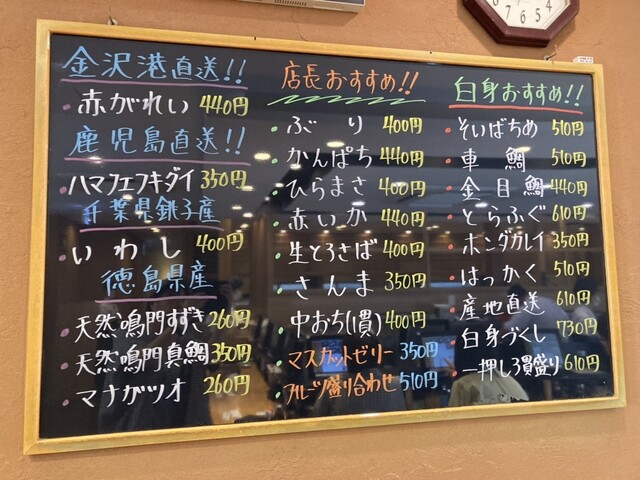 金沢港直送!!
赤がれい 440円
鹿児島直送!!
ハマフエフキダイ 350円
千葉県銚子産
いわし 400円
徳島県産
天然鳴門すずき 260円
天然鳴門真鯛 350円
マナガツオ 260円
店長おすすめ!!
ぶり 400円
かんぱち 440円
ひらまさ 400円
赤いか 440円
生とろさば 400円
さんま 350円
中おち(1貫) 400円
マスカットゼリー 350円
フルーツ盛り合わせ 510円
白身おすすめ!!
そいばちめ 510円
車鯛 510円
金目鯛 440円
とらふぐ 610円
ホンダガレイ 350円
はっかく 510円
産地直送 610円
白身づくし 730円
一押し3貫盛り 610円
8 7 6 5 4